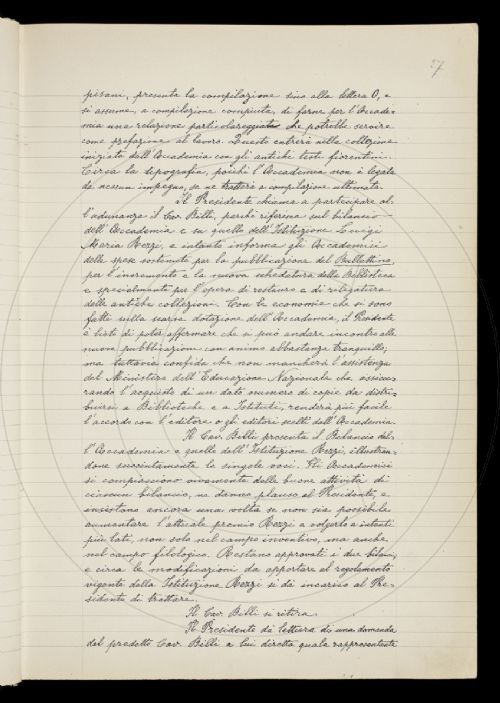 57
pisani, presenta la compilazione sino alla lettera O, e
si assume, a compilazione compiuta, di farne per l'Accade-
mia una relazione particolareggiata che potrebbe servire
come prefazione al lavoro. Questo entrerà nella collezione
iniziata dall'Accademia con gli antichi testi fiorentini.
Circa la tipografia, poiché l'Accademia non è legata
da nessun impegno, se ne tratterà a compilazione ultimata.
Il Presidente chiama a partecipare al-
l'adunanza il Cav. Billi, perché riferisca sul bilancio
dell'Accademia e su quello dell'Istituzione Luigi
Maria Rezzi, e intanto informa gli Accademici
delle spese sostenute per la pubblicazione del Bullettino,
per l'incremento e la nuova schedatura della Biblioteca
e specialmente per l'opera di restauro e di rilegatura
delle antiche collezioni. Con le economie che si sono
fatte sulla scarsa dotazione dell'Accademia, il Presidente
è lieto di poter affermare che si può andare incontro alle
nuove pubblicazioni con animo abbastanza tranquillo;
ma tuttavia confida che non mancherà l'assistenza
del Ministero dell'Educazione Nazionale che assicu-
rando l'acquisto di un dato numero di copie da distri-
buirsi a Biblioteche e a Istituti, renderà più facile
l'accordo con l'editore o gli editori scelti dall'Accademia.
Il Cav. Billi presenta il Bilancio del-
l'Accademia e quello dell'Istituzione Rezzi, illustran-
done succintamente le singole voci. Gli Accademici
si compiacciono vivamente delle buone attività di
ciascun bilancio, ne danno plauso al Presidente, e
insistono ancora una volta se non sia possibile
aumentare l'attuale premio Rezzi e volgerlo a intenti
più lati, non solo nel campo inventivo, ma anche
nel campo filologico. Restano approvati i due bilanci,
e circa le modificazioni da apportare al regolamento
vigente della Istituzione Rezzi si dà incarico al Pre-
sidente di trattare.
Il Cav. Billi si ritira.
Il Presidente dà lettura di una domanda
del predetto Cav. Billi a lui diretta quale rappresentante